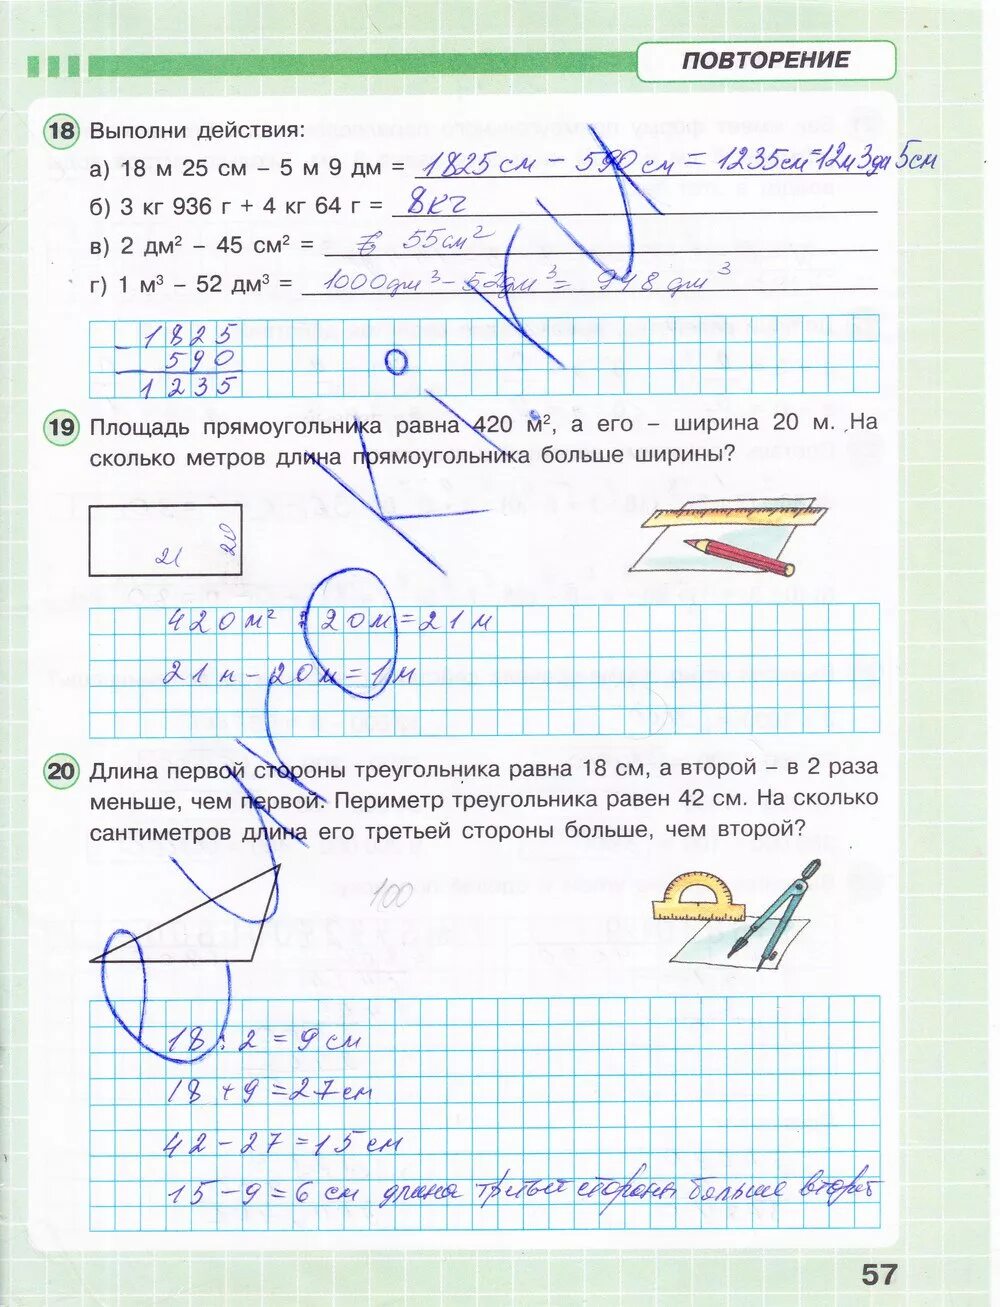 ПОВТОРЕНИЕ
18 Выполни действия:
а) 18 м 25 см – 5 м 9 дм = 1825 см – 590 см = 1235 см = 12 м 3 дм 5 см
б) 3 кг 936 г + 4 кг 64 г = 8 кг
в) 2 дм² – 45 см² = 55 см²
г) 1 м³ – 52 дм³ = 1000 дм³ – 52 дм³ = 948 дм³
– 1825
590
1235
19 Площадь прямоугольника равна 420 м², а его – ширина 20 м. На
сколько метров длина прямоугольника больше ширины?
21 20
420 м² : 20 м = 21 м
21 м – 20 м = 1 м
20 Длина первой стороны треугольника равна 18 см, а второй – в 2 раза
меньше, чем первой. Периметр треугольника равен 42 см. На сколько
сантиметров длина его третьей стороны больше, чем второй?
100
18 : 2 = 9 см
18 + 9 = 27 см
42 – 27 = 15 см
15 – 9 = 6 см длина третьей стороны больше второй
57